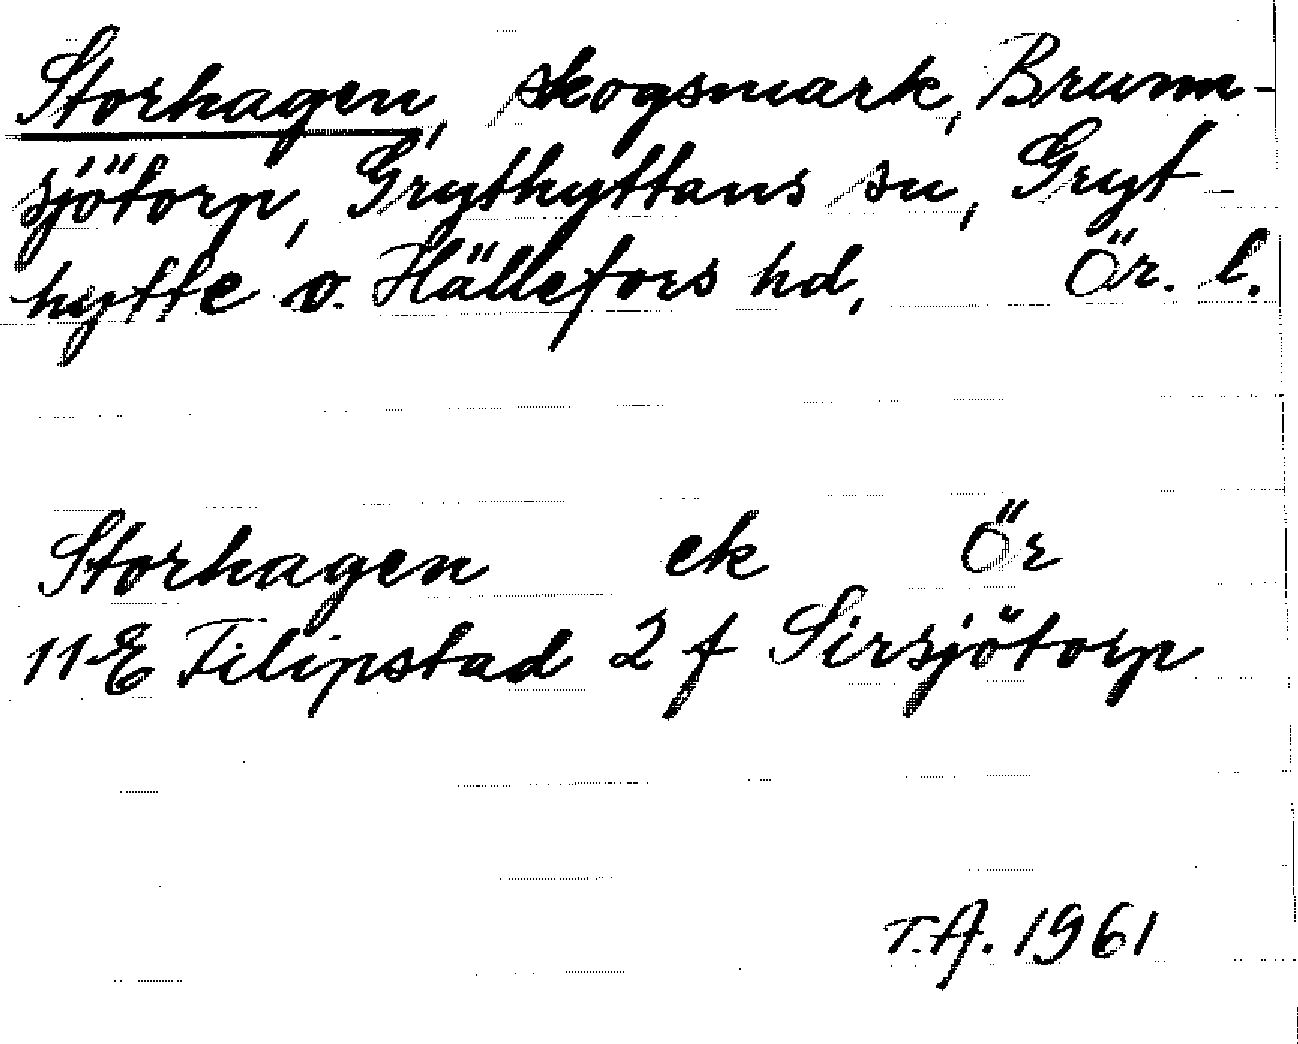 Storhagen, skogsmark, Brunn-
sjötorp, Grythyttans sn, Gryt-
hytte o. Hällefors hd, Ör. l.
Storhagen ek Ör
11E Filipstad 2 f Sirsjötorp
T.A. 1961